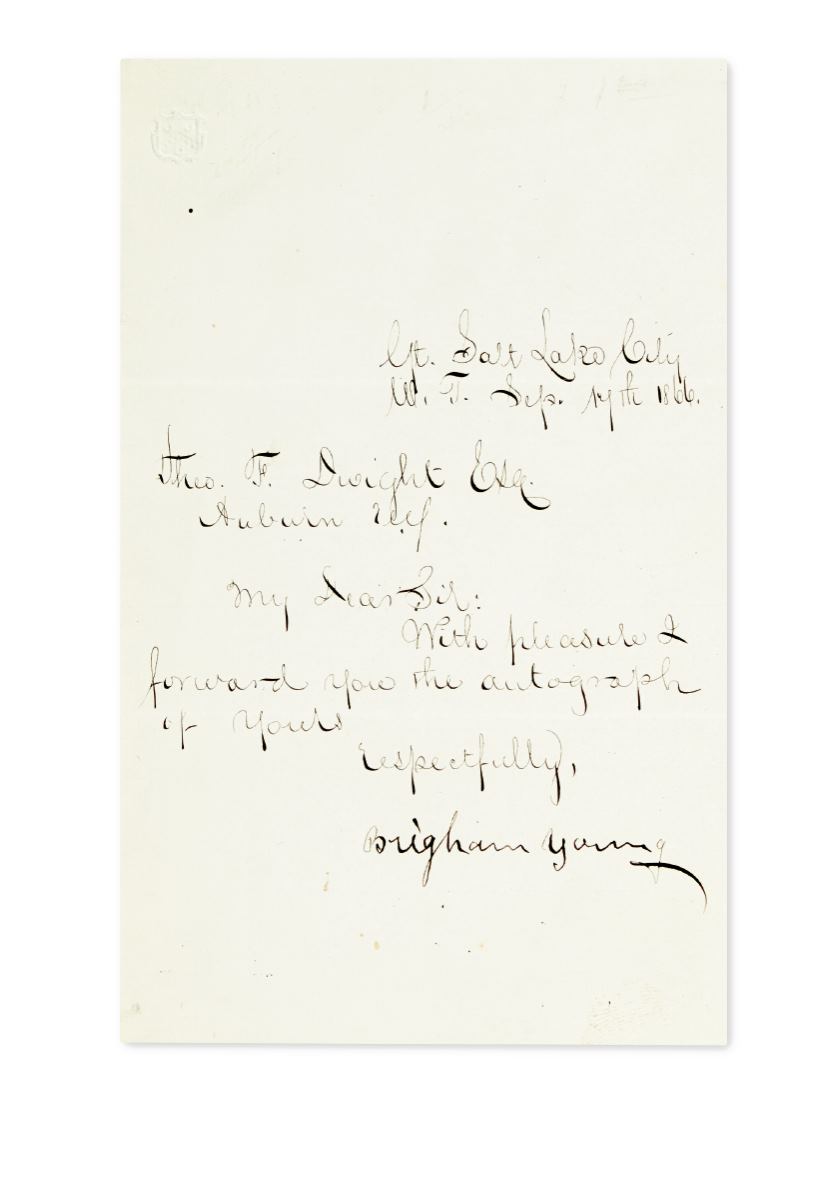 Gt. Salt Lake City
U. T. Sep. 17th 1866.
Theo. F. Dwight Esq.
Auburn
My Dear Sir:
With pleasure I
forward you the autograph
of Yours
respectfully,
Brigham Young